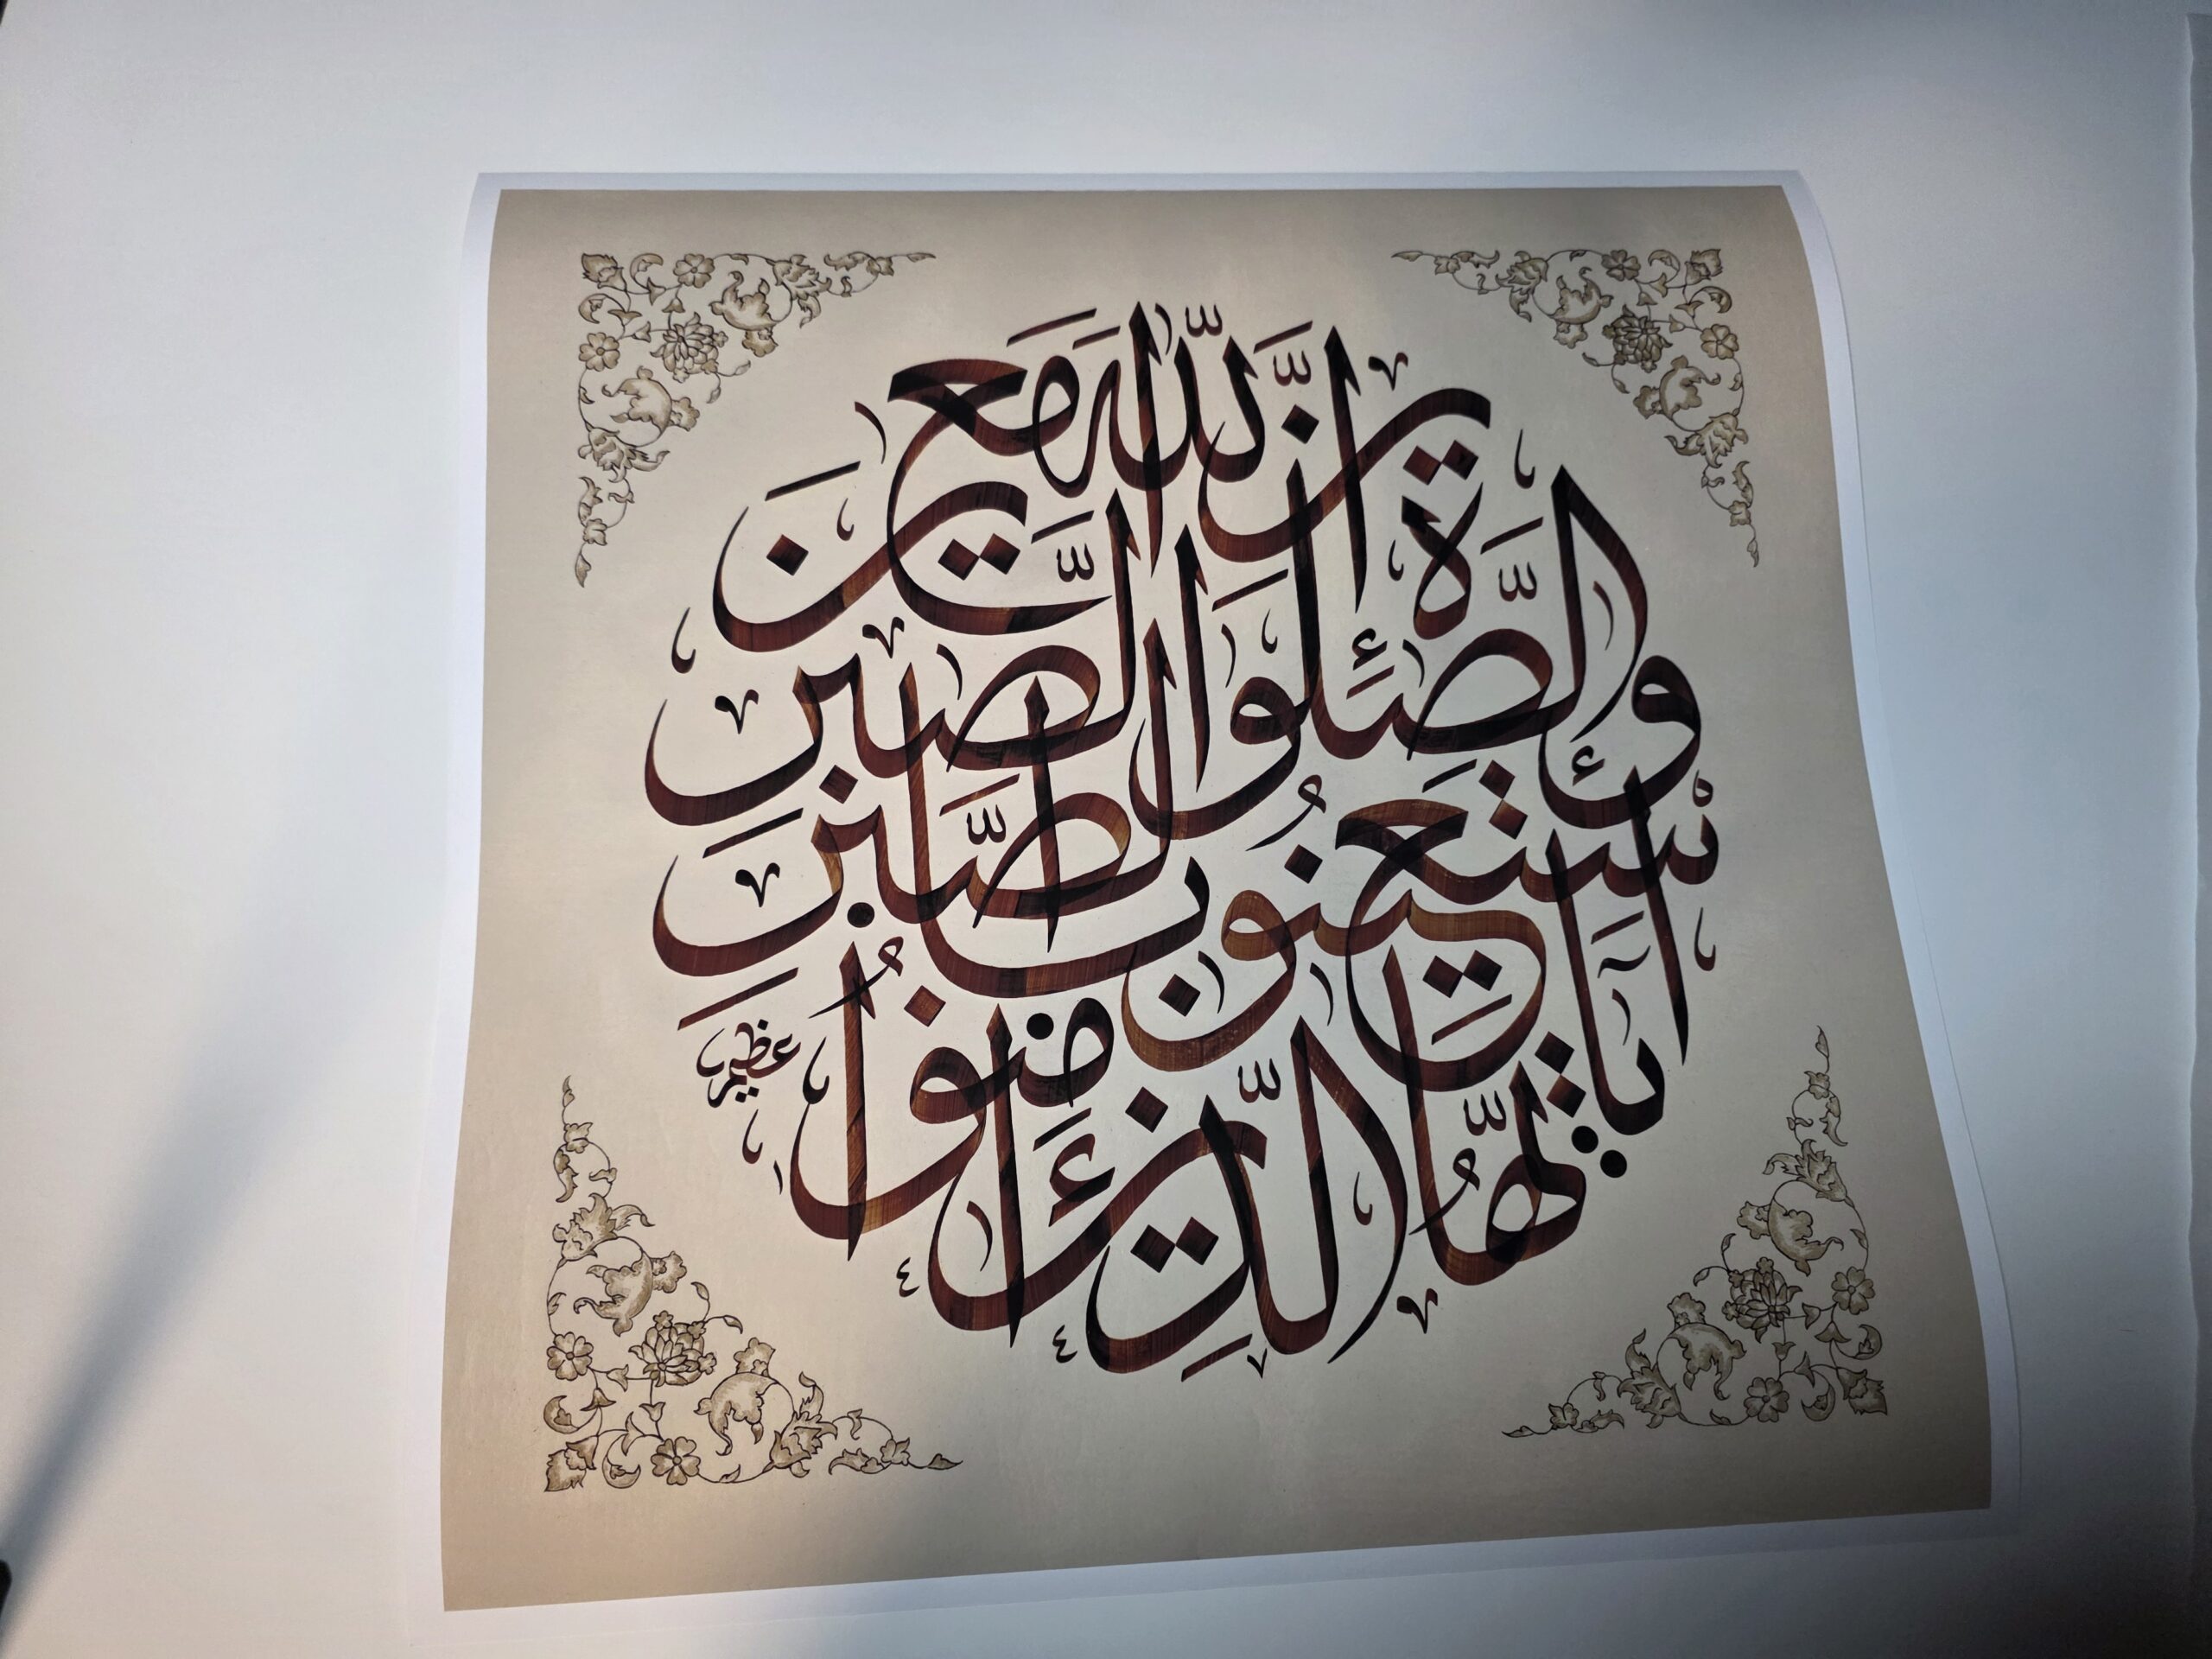 يَٰٓأَيُّهَا الَّذِينَ ءَامَنُوا
اسْتَعِينُوا بِالصَّبْرِ
وَالصَّلَوٰةِ
إِنَّ اللَّهَ مَعَ الصَّٰبِرِينَ
عظيم